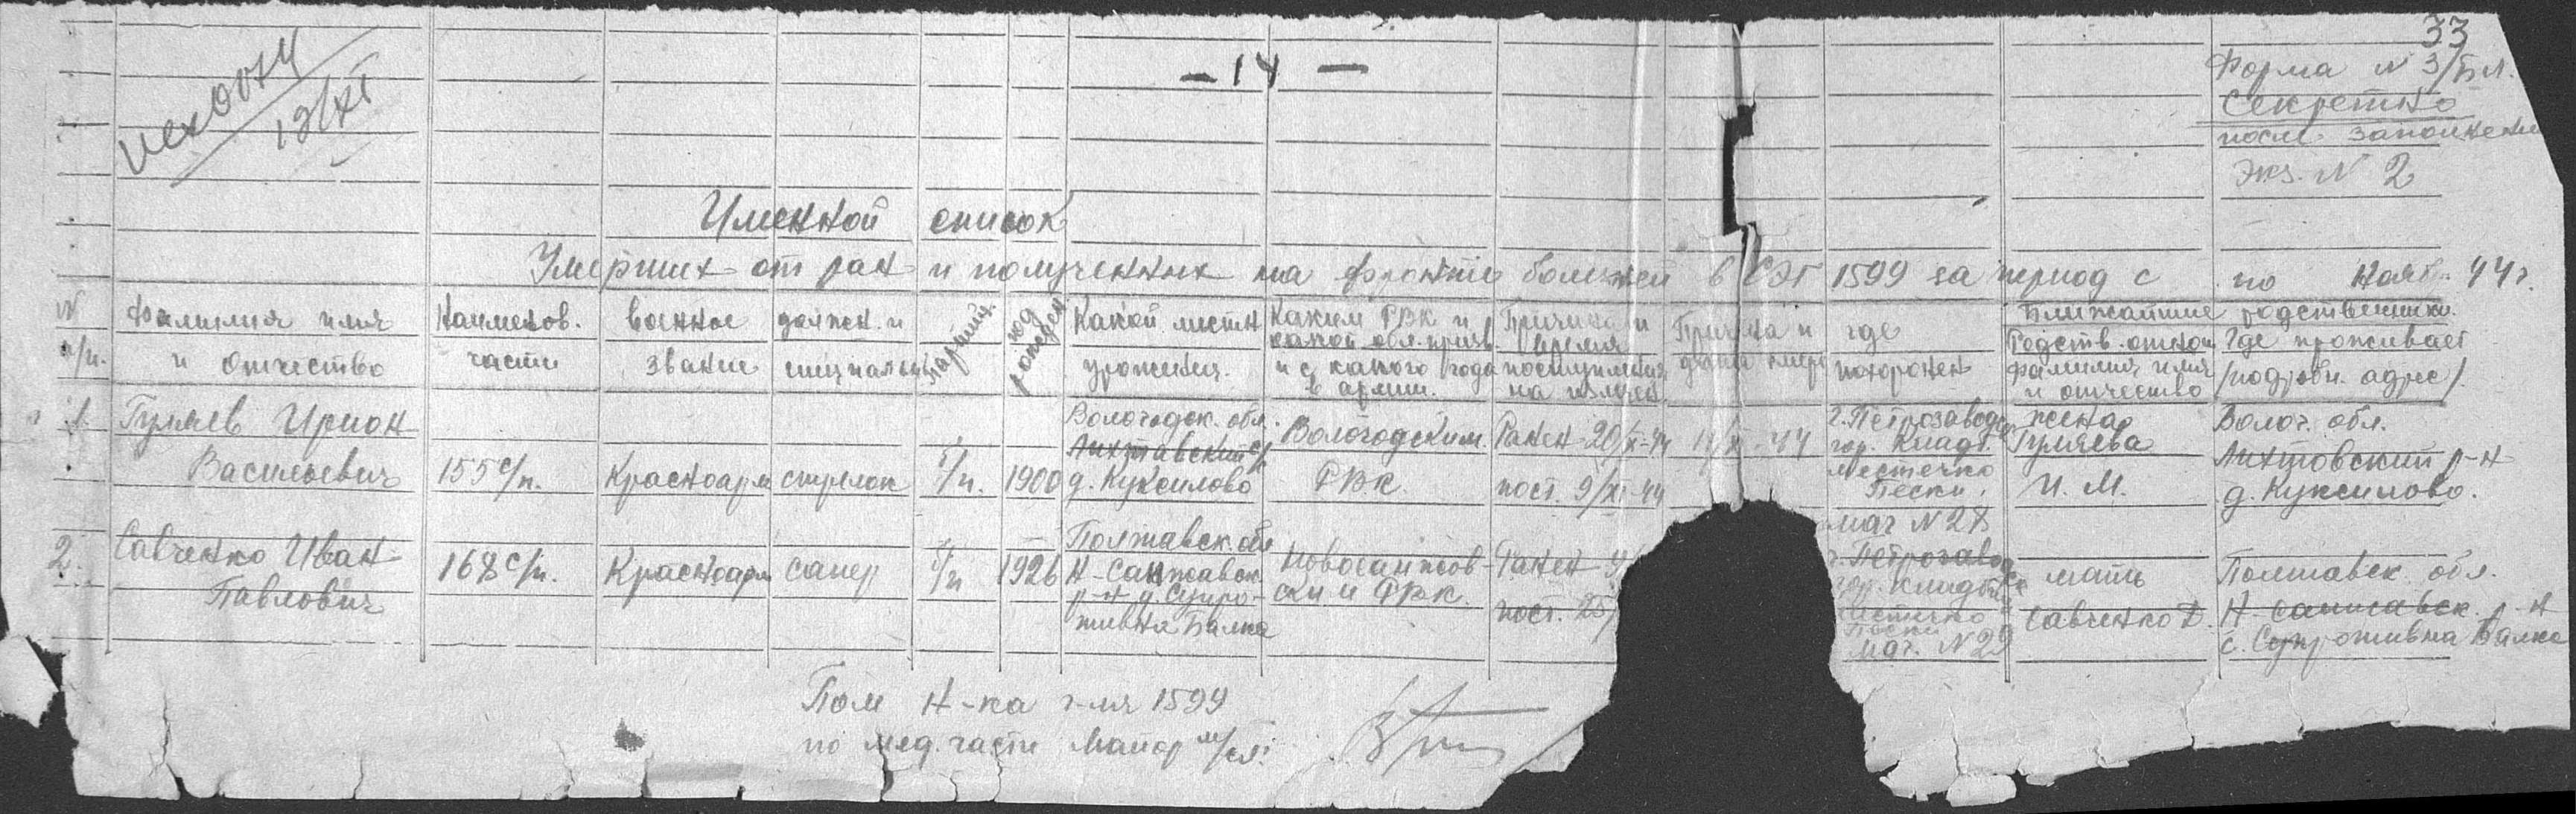 33
- 14 -
Форма N 3/Бл.
Секретно
после заполнения
Экз. N 2
исходящ
12/XI
Именной список
Умерших от ран и полученных на фронте болезней в СЭГ 1599 за период с по Нояб. 44 г.
N п/п.
Фамилия имя и отчество
Наименов. части
Военное звание
должн. и специальн.
Партийн.
год рожден.
Какой местн урожения.
Каким РВК и какой обл. призв. и с какого года в армии.
Причина и время поступления на излечен.
Причина и дата смер
где похоронен
Ближайшие родственники.
Родств. отнош фамилия имя и отчество
Где проживает /подробн. адрес/
1. Гуляев Ирион Васильевич
155 с/п.
Красноарм
стрелок
б/п.
1900
Вологодск. обл.
д. Куксилово
Вологодским РВК
Ранен 20/X-44
пост. 9/XI-44
11/XI-44
г. Петрозаводск
гор. Кладб.
местечко
Пески.
маг N 28
жена
Гуляева
И. М.
Волог. обл.
р-н
д. Куксилово.
2. Савченко Иван Павлович
168 с/п.
Красноарм
сапер
б/п
1926
Полтавск. обл
Н-Санжавск.
р-н д. Супро-
тивня Балка
Новосанжов-
ский РВК.
Ранен
пост. 25/
г. Петрозаводск
гор. кладбище
местечко
Пески
маг. N 29
мать
Савченко Д.
Полтавск. обл.
Н-Санжавск. р-н
с. Супротивна Балка
Пом Н-ка г-ля 1599
по мед. части Майор м/сл: